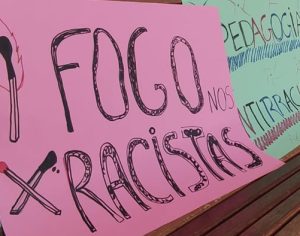 FOGO
NOS
RACISTAS
PEDAGOGIA
ANTIRRACI